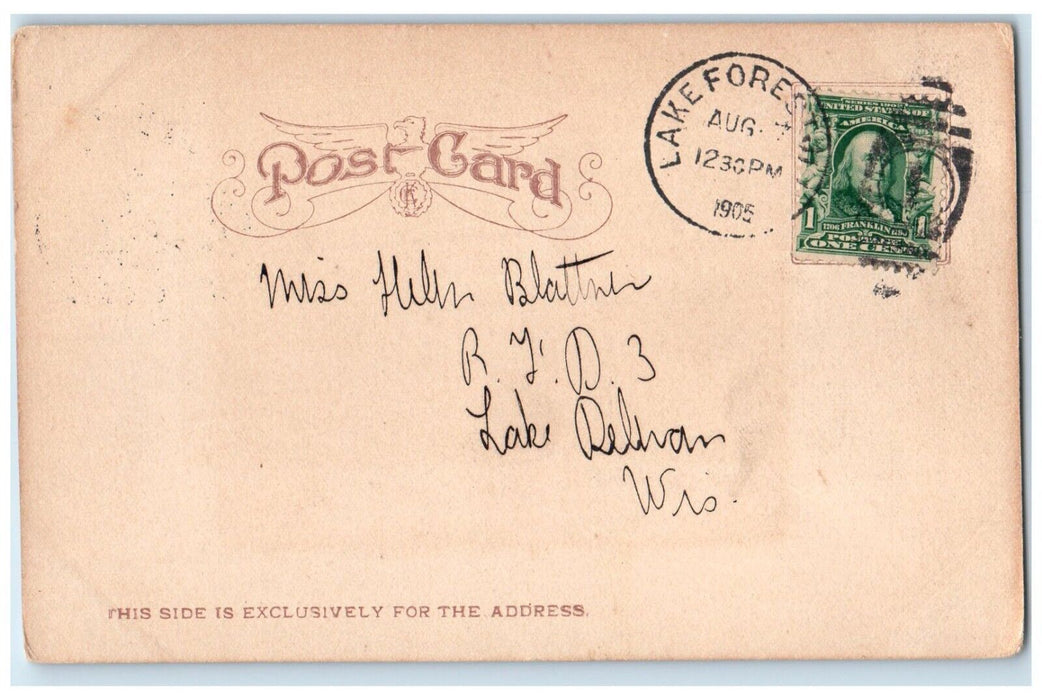 Post Card
LAKE FOREST
AUG 7
1230PM
1905
SERIES 1902
UNITED STATES OF
AMERICA
1706 FRANKLIN 1790
POSTAGE
1 ONE CENT 1
Miss Helen Blattner
R. F. D. 3
Lake Delavan
Wis.
THIS SIDE IS EXCLUSIVELY FOR THE ADDRESS.